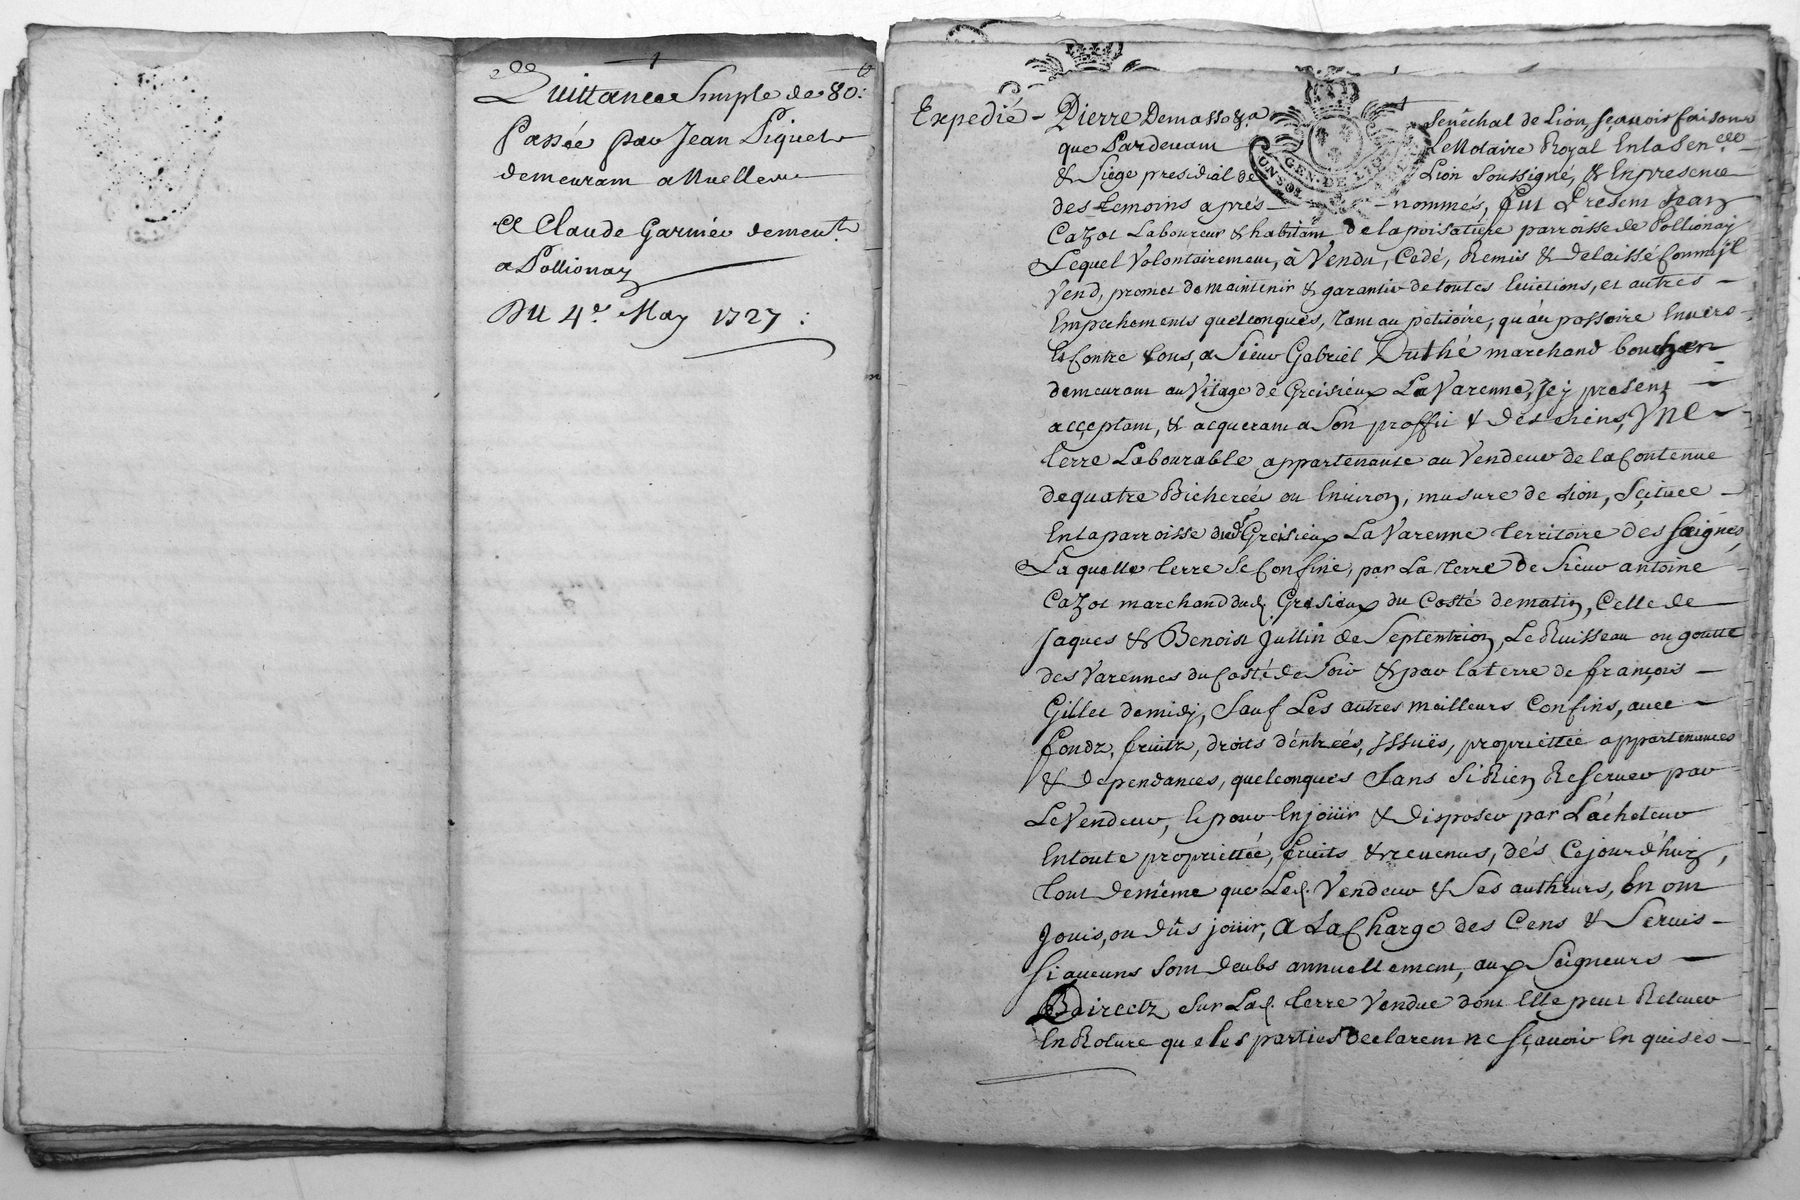 1
Quittance Simple de 80 lt:
Passée par Jean Piquet
demeurant a
A Claude Garnier demeut.
a Pollionay
Du 4e. May 1727 :
Expedié -
Pierre Demassoza Senéchal de Lion sçavoir faisons
que Pardevant Le Notaire Royal En la Sen.cée
& Siège presidial de Lion Soussigné, & En presence
des temoins aprés nommés, fut Present Jean
Cazot Laboureur & habitant de la poisatiere parroisse de Pollionay
Lequel Volontairement, à Vendu, Cedé, Remis & delaissé Comme Il
Vend, promet de maintenir & garantir de toutes Evictions, et autres
Empechements quelconques, tant au petitoire, qu'au possoire Envers
Et Contre tous, a Sieur Gabriel Duthé marchand boucher
demeurant au Vilage de Greisieux La Varenne, Icy present
acceptant, & acquerant a Son proffit & des siens, Vne
terre Labourable appartenante au Vendeur de la Contenue
de quatre Bicherées ou Environ, mesure de Lion, Scituée
En la parroisse dud. Greisieux La Varenne territoire des Saignes,
Laquelle terre Se Confine, par La terre de Sieur antoine
Cazot marchand dud. Gresieux du Costé de matin, Celle de
Jaques & Benoist Jullin de Septentrion, Le Ruisseau ou goutte
des Varennes du Costé de Soir & par la terre de françois
Gillet de midy, Sauf Les autres meilleurs Confins, avec
fondz, fruitz, droits d'éntrées, Issuës, proprietée appartenances
& dependances, quelconques Sans Si Rien Reserver par
Le Vendeur, le pour En joüir & disposer par L'acheteur
En toute proprietée, fruits & revenus, dés Cejourd'huy,
tout de même que Led. Vendeur & Ses autheurs, En ont
Jouis, ou dûs joüir, A La Charge des Cens & Servis
Si aucuns Sont deubs annuellement, aux Seigneurs
Directz Sur Lad. terre Vendue dont Elle peut Relever
En Roture que les parties Declarent ne Sçavoir En quises